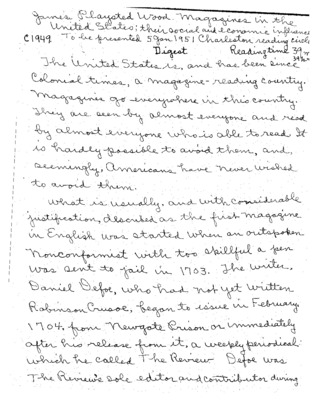 James Playsted Wood Magazines in the
United States; their social and economic influence
C1949 To be presented 5 Jan 1951 Charleston reading circle
Digest Reading time 39
The United States is, and has been since
Colonial times, a magazine-reading country.
Magazines go everywhere in this country.
They are seen by almost everyone and read
by almost everyone who is able to read It
is hardly possible to avoid them, and,
seemingly, Americans have never wished
to avoid them.
What is usually, and with considerable
justification, described as the first magazine
in English was started when an outspoken
nonconformist with too skillful a pen
was sent to jail in 1703. The writer,
Daniel Defoe, who had not yet written
Robinson Crusoe, began to issue in February
1704, from Newgate Prison or immediately
after his release from it, a weekly periodical
which he called The Review Defoe was
The Review's sole editor and contributor during